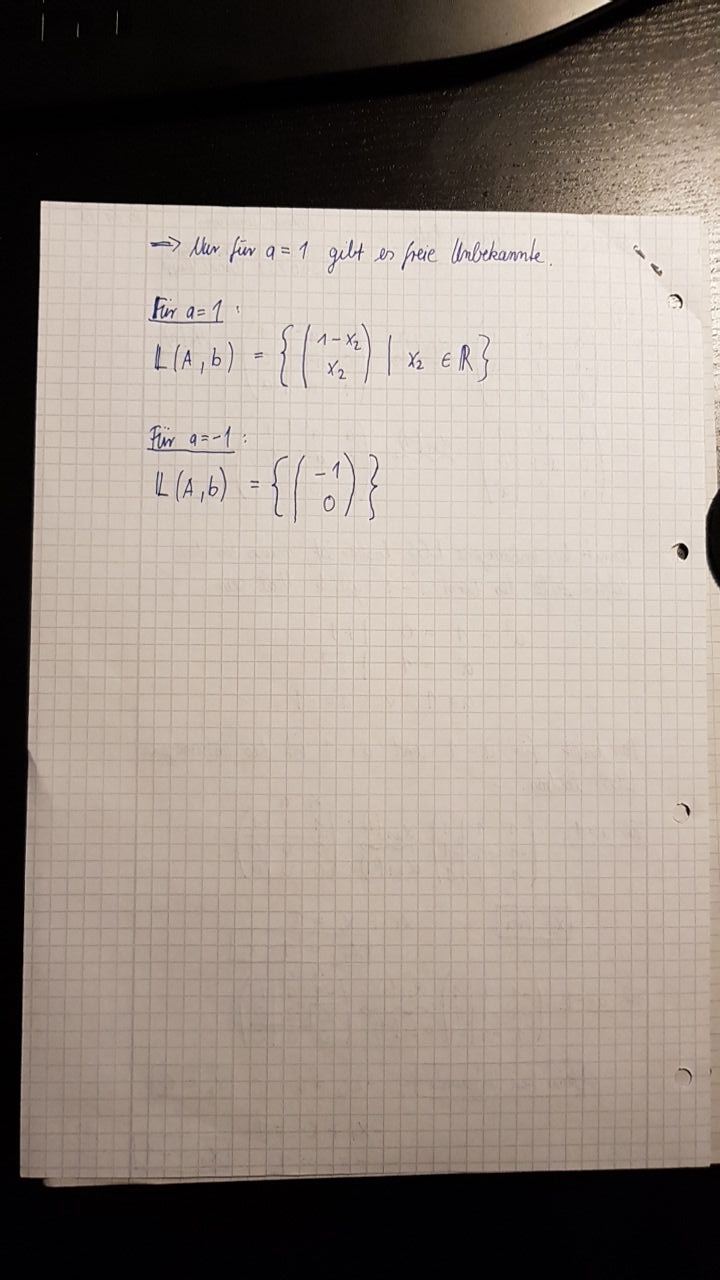 ⇒ Nur für a = 1 gibt es freie Unbekannte.
Für a = 1 :
𝕃(A, b) = { ( 1 - x₂
x₂ ) | x₂ ∈ ℝ }
Für a = -1 :
𝕃(A, b) = { ( -1
0 ) }